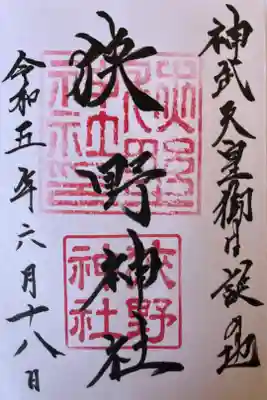 神武天皇御降誕の地
狭野神社
狭野
神社
令和五年六月十八日